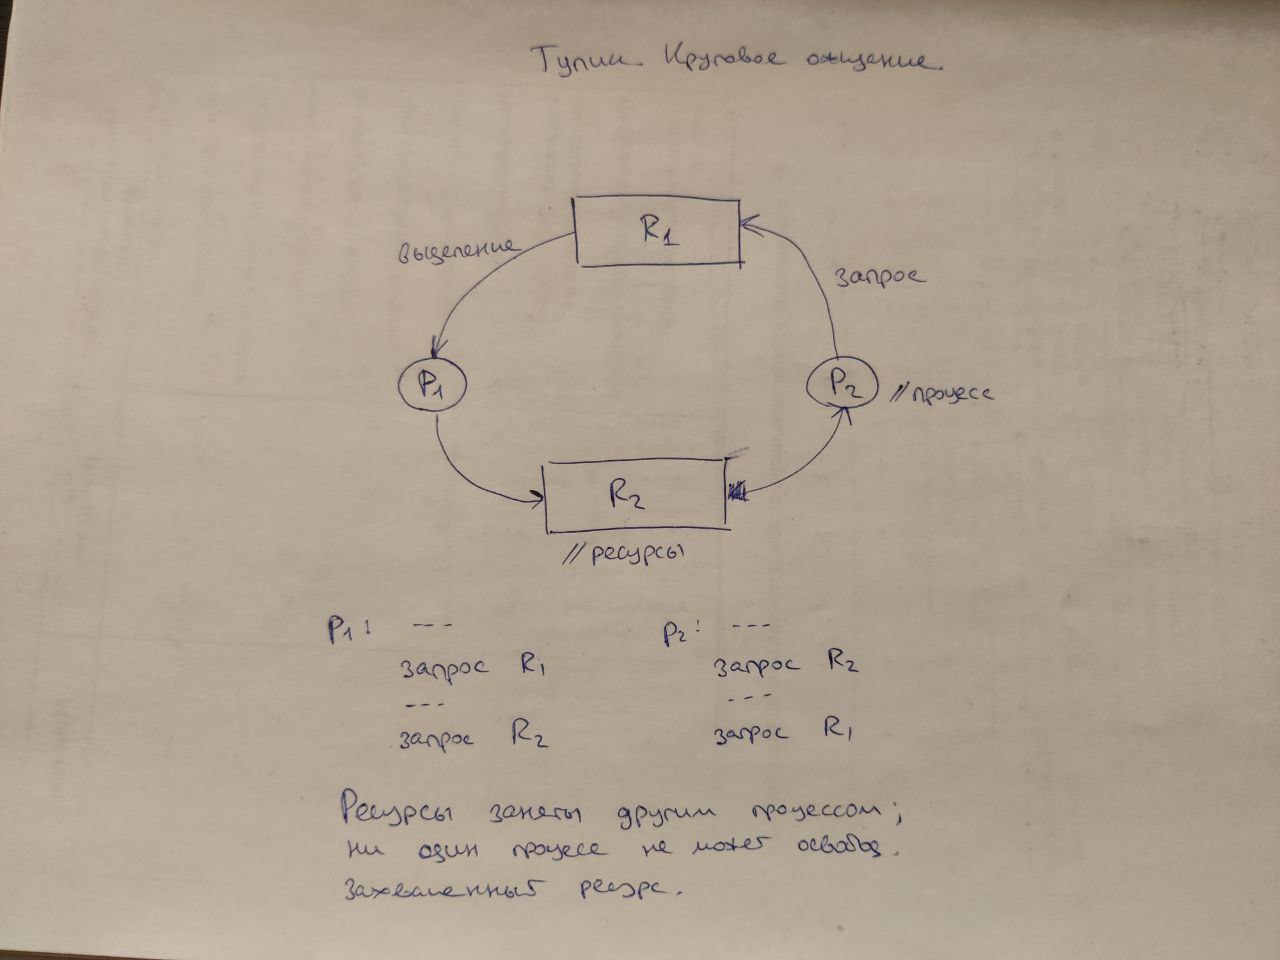 Тупик. Круговое ожидание.
R1
выделение
запрос
P1
P2 // процесс
R2
// ресурсы
P1: --- P2: ---
запрос R1 запрос R2
--- ---
запрос R2 запрос R1
Ресурсы заняты другим процессом;
ни один процесс не может освобод.
захваченный ресурс.